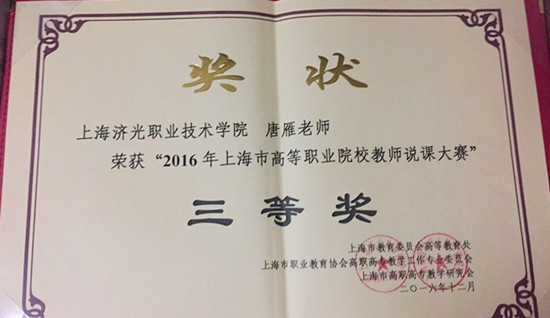 奖状
上海济光职业技术学院 唐雁老师
荣获“2016年上海市高等职业院校教师说课大赛”
三等奖
上海市教育委员会高等教育处
上海市职业教育协会高职高专教学工作专业委员会
上海市高职高专教学研究会
二〇一六年十二月